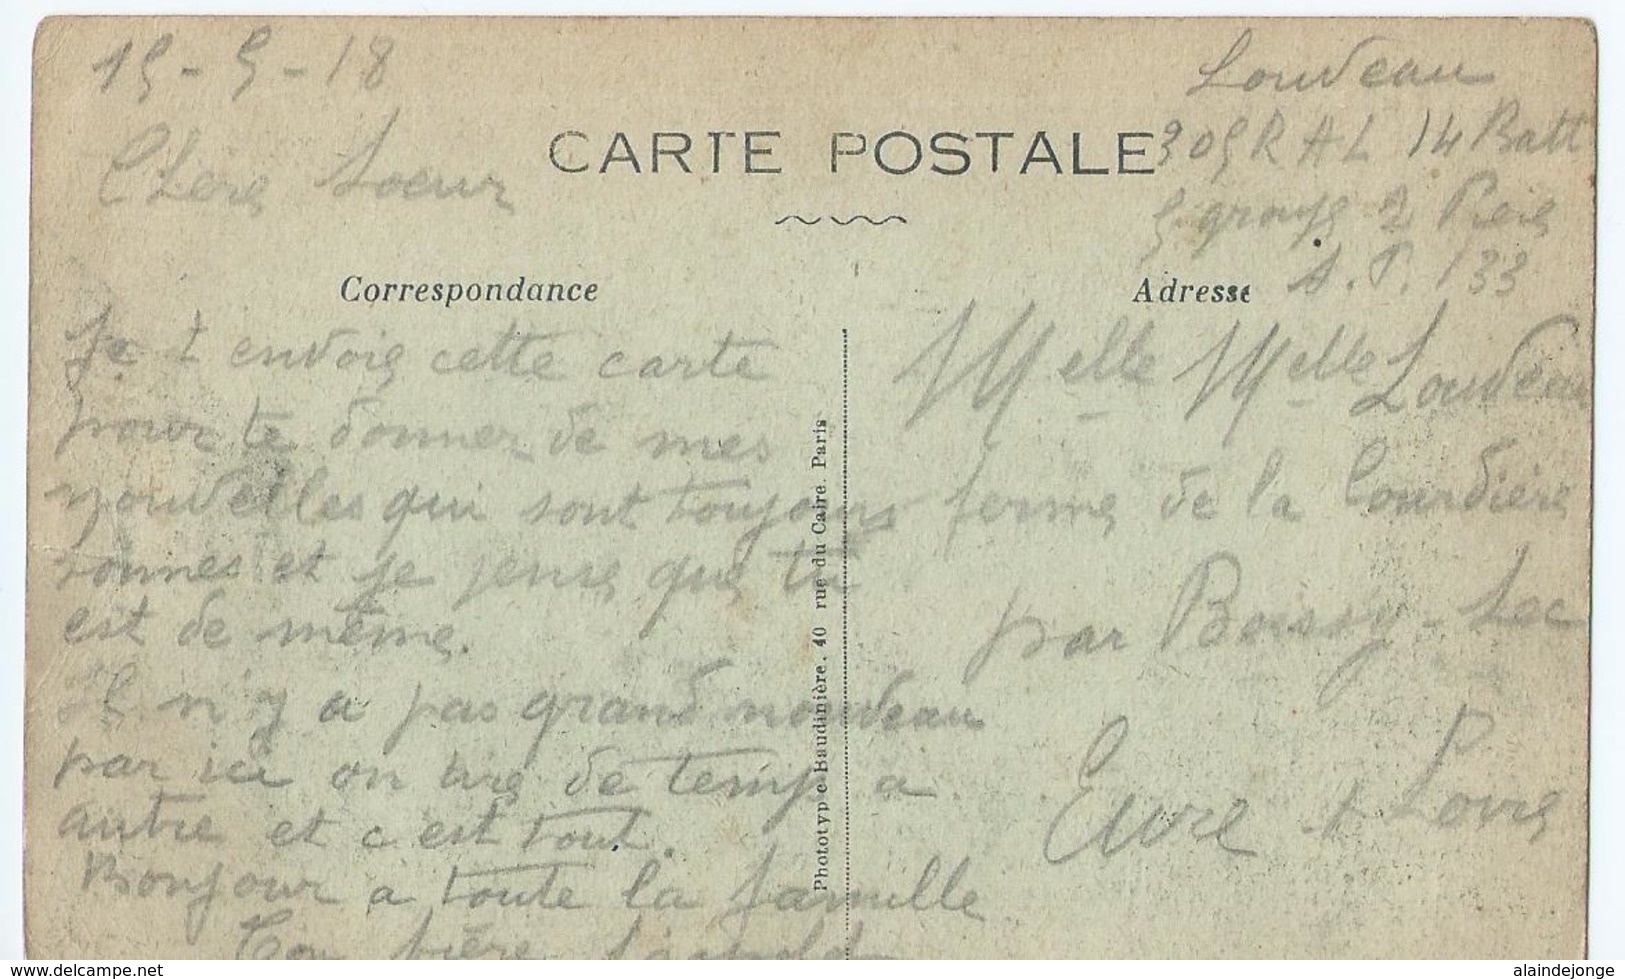 15-5-18
Chère Soeur
Je t envoie cette carte
pour te donner de mes
nouvelles qui sont toujours
bonnes et je pense que tu
est de même.
Il n'y a pas grand nouveau
par ici on tire de temp a
autre et c est tout.
Bonjour a toute la famille
Ton frère
CARTE POSTALE
Correspondance
Adresse
Louveau
305 R A L 14 Batt
5 groupe 2 Pièce
A.P. 133
Melle Melle Louveau
ferme de la Courdière
par Boissy-Sec
Eure & Loire
Phototypie Baudinière, 40 rue du Caire. Paris
www.delcampe.net
alaindejonge